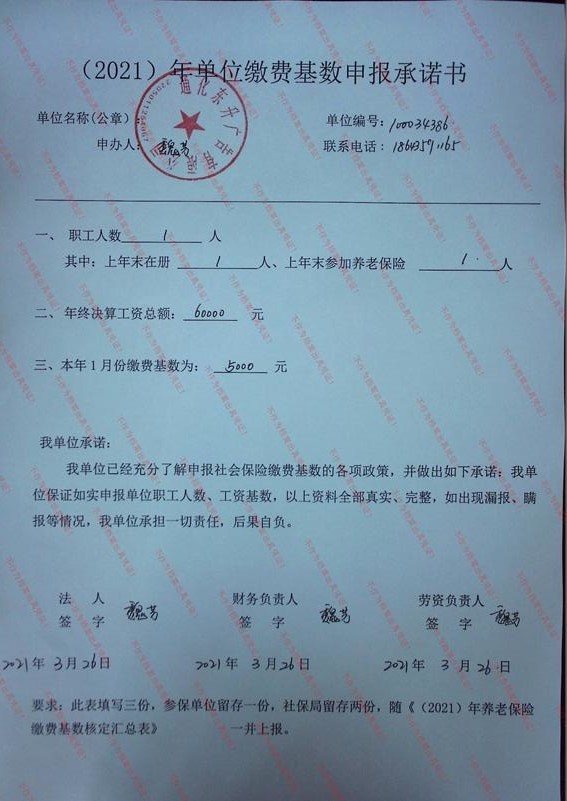 （2021）年单位缴费基数申报承诺书
单位名称(公章)
单位编号：100034386
申办人：魏芳
联系电话：18643571165
通化东升广告
一、 职工人数 1 人
其中：上年末在册 1 人、上年末参加养老保险 1 人
二、年终决算工资总额：60000 元
三、本年1月份缴费基数为：5000 元
我单位承诺：
我单位已经充分了解申报社会保险缴费基数的各项政策，并做出如下承诺：我单
位保证如实申报单位职工人数、工资基数，以上资料全部真实、完整，如出现漏报、瞒
报等情况，我单位承担一切责任，后果自负。
法 人 财务负责人 劳资负责人
签 字 魏芳 签 字 魏芳 签 字 魏芳
2021年 3月26日 2021年 3月26日 2021年 3月26日
要求：此表填写三份，参保单位留存一份，社保局留存两份，随《（2021）年养老保险
缴费基数核定汇总表》 一并上报。